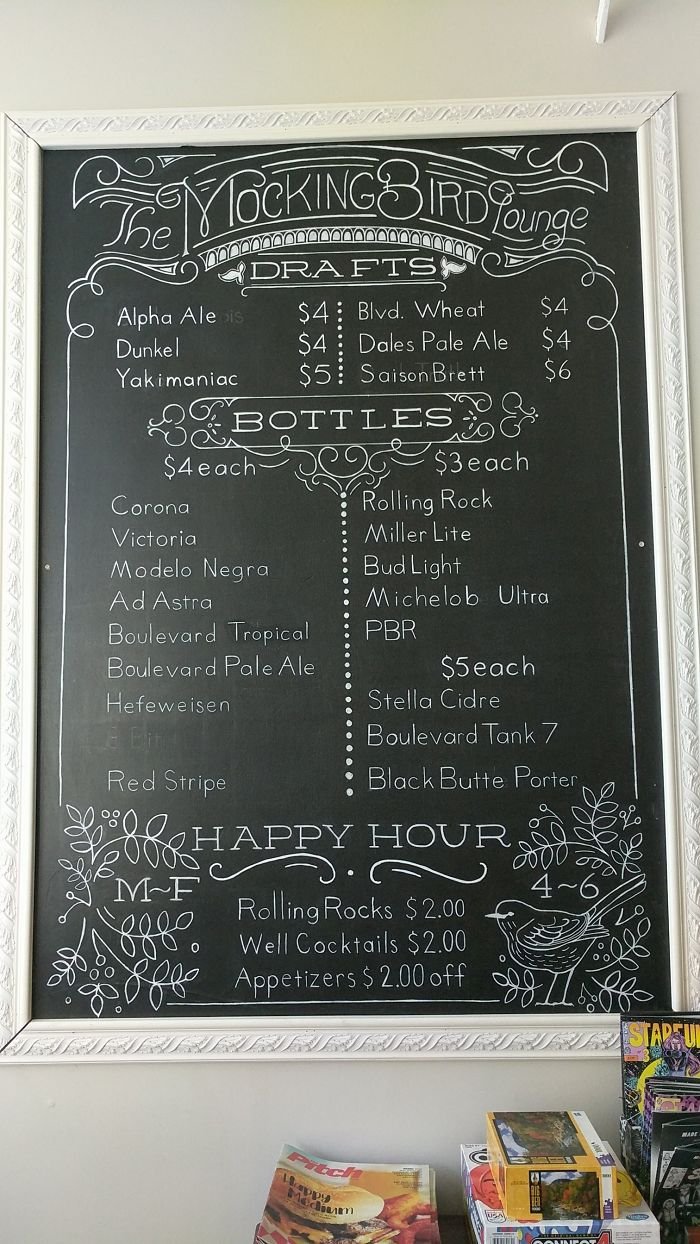 The MockingBird Lounge
DRAFTS
Alpha Ale $4
Dunkel $4
Yakimaniac $5
Blvd. Wheat $4
Dales Pale Ale $4
Saison Brett $6
BOTTLES
$4 each
Corona
Victoria
Modelo Negra
Ad Astra
Boulevard Tropical
Boulevard Pale Ale
Hefeweisen
Red Stripe
$3 each
Rolling Rock
Miller Lite
Bud Light
Michelob Ultra
PBR
$5 each
Stella Cidre
Boulevard Tank 7
Black Butte Porter
HAPPY HOUR
M~F 4~6
Rolling Rocks $2.00
Well Cocktails $2.00
Appetizers $2.00 off
Pitch
Happy
Medium
CONNECT 4